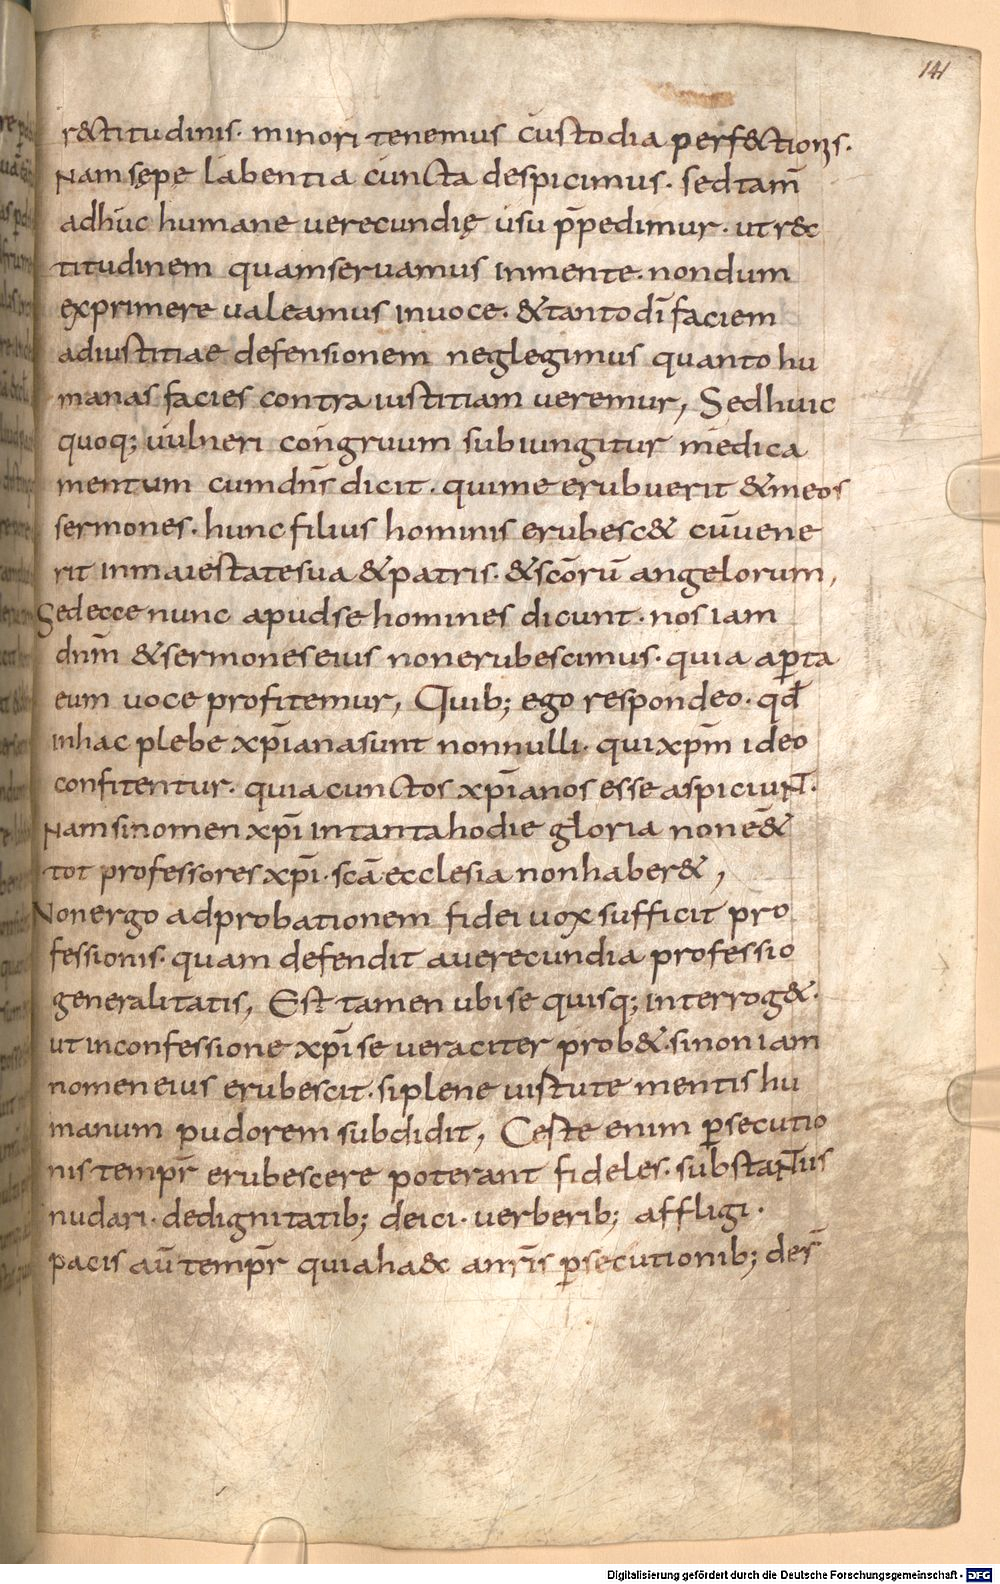 141
r&titudinis· minori tenemus custodia perf&tionis.
Nam sępę labentia cuncta despicimus· sed tam̄
adhuc humane uerecundię usu p̄pedimur· ut r&c
titudinem quam seruamus in mente· nondum
exprimere ualeamus in uoce· & tanto dī faciem
ad iustitiae defensionem neglegimus quanto hu
manas facies contra iustitiam ueremur, Sed huic
quoq; uulneri congruum subiungitur medica
mentum cum dn̄s dicit· qui me erubuerit & meos
sermones· hunc filius hominis erubesc& cū uene
rit in maiestate sua & patris· & scōrū angelorum,
Sed ecce nunc apud se homines dicunt· nos iam
dnm̄ & sermones eius non erubescimus· quia aꝑta
eum uoce profitemur, Quib; ego respondeo· qđ
in hac plebe xp̄iana sunt nonnulli· qui xp̄m ideo
confitentur· quia cunctos xp̄ianos esse aspiciunt·
Nam si nomen xp̄i in tanta hodie gloria non ē&
tot professores xp̄i· scā ecclesia non haber&,
Non ergo ad probationem fidei uox sufficit pro
fessionis· quam defendit a uerecundia professio
generalitatis, Est tamen ubi se quisq; interrog&·
ut in confessione xp̄i se ueraciter prob&· si non iam
nomen eius erubescit· si plene uistute mentis hu
manum pudorem subdidit, Ceste enim ꝑsecutio
nis tempr̄ erubescere poterant fideles· substantiis
nudari· de dignitatib; deici· uerberib; affligi·
pacis aū tempr̄ quia ha&c a nr̄is ꝑsecutionib; desr̄
Digitalisierung gefördert durch die Deutsche Forschungsgemeinschaft - DFG